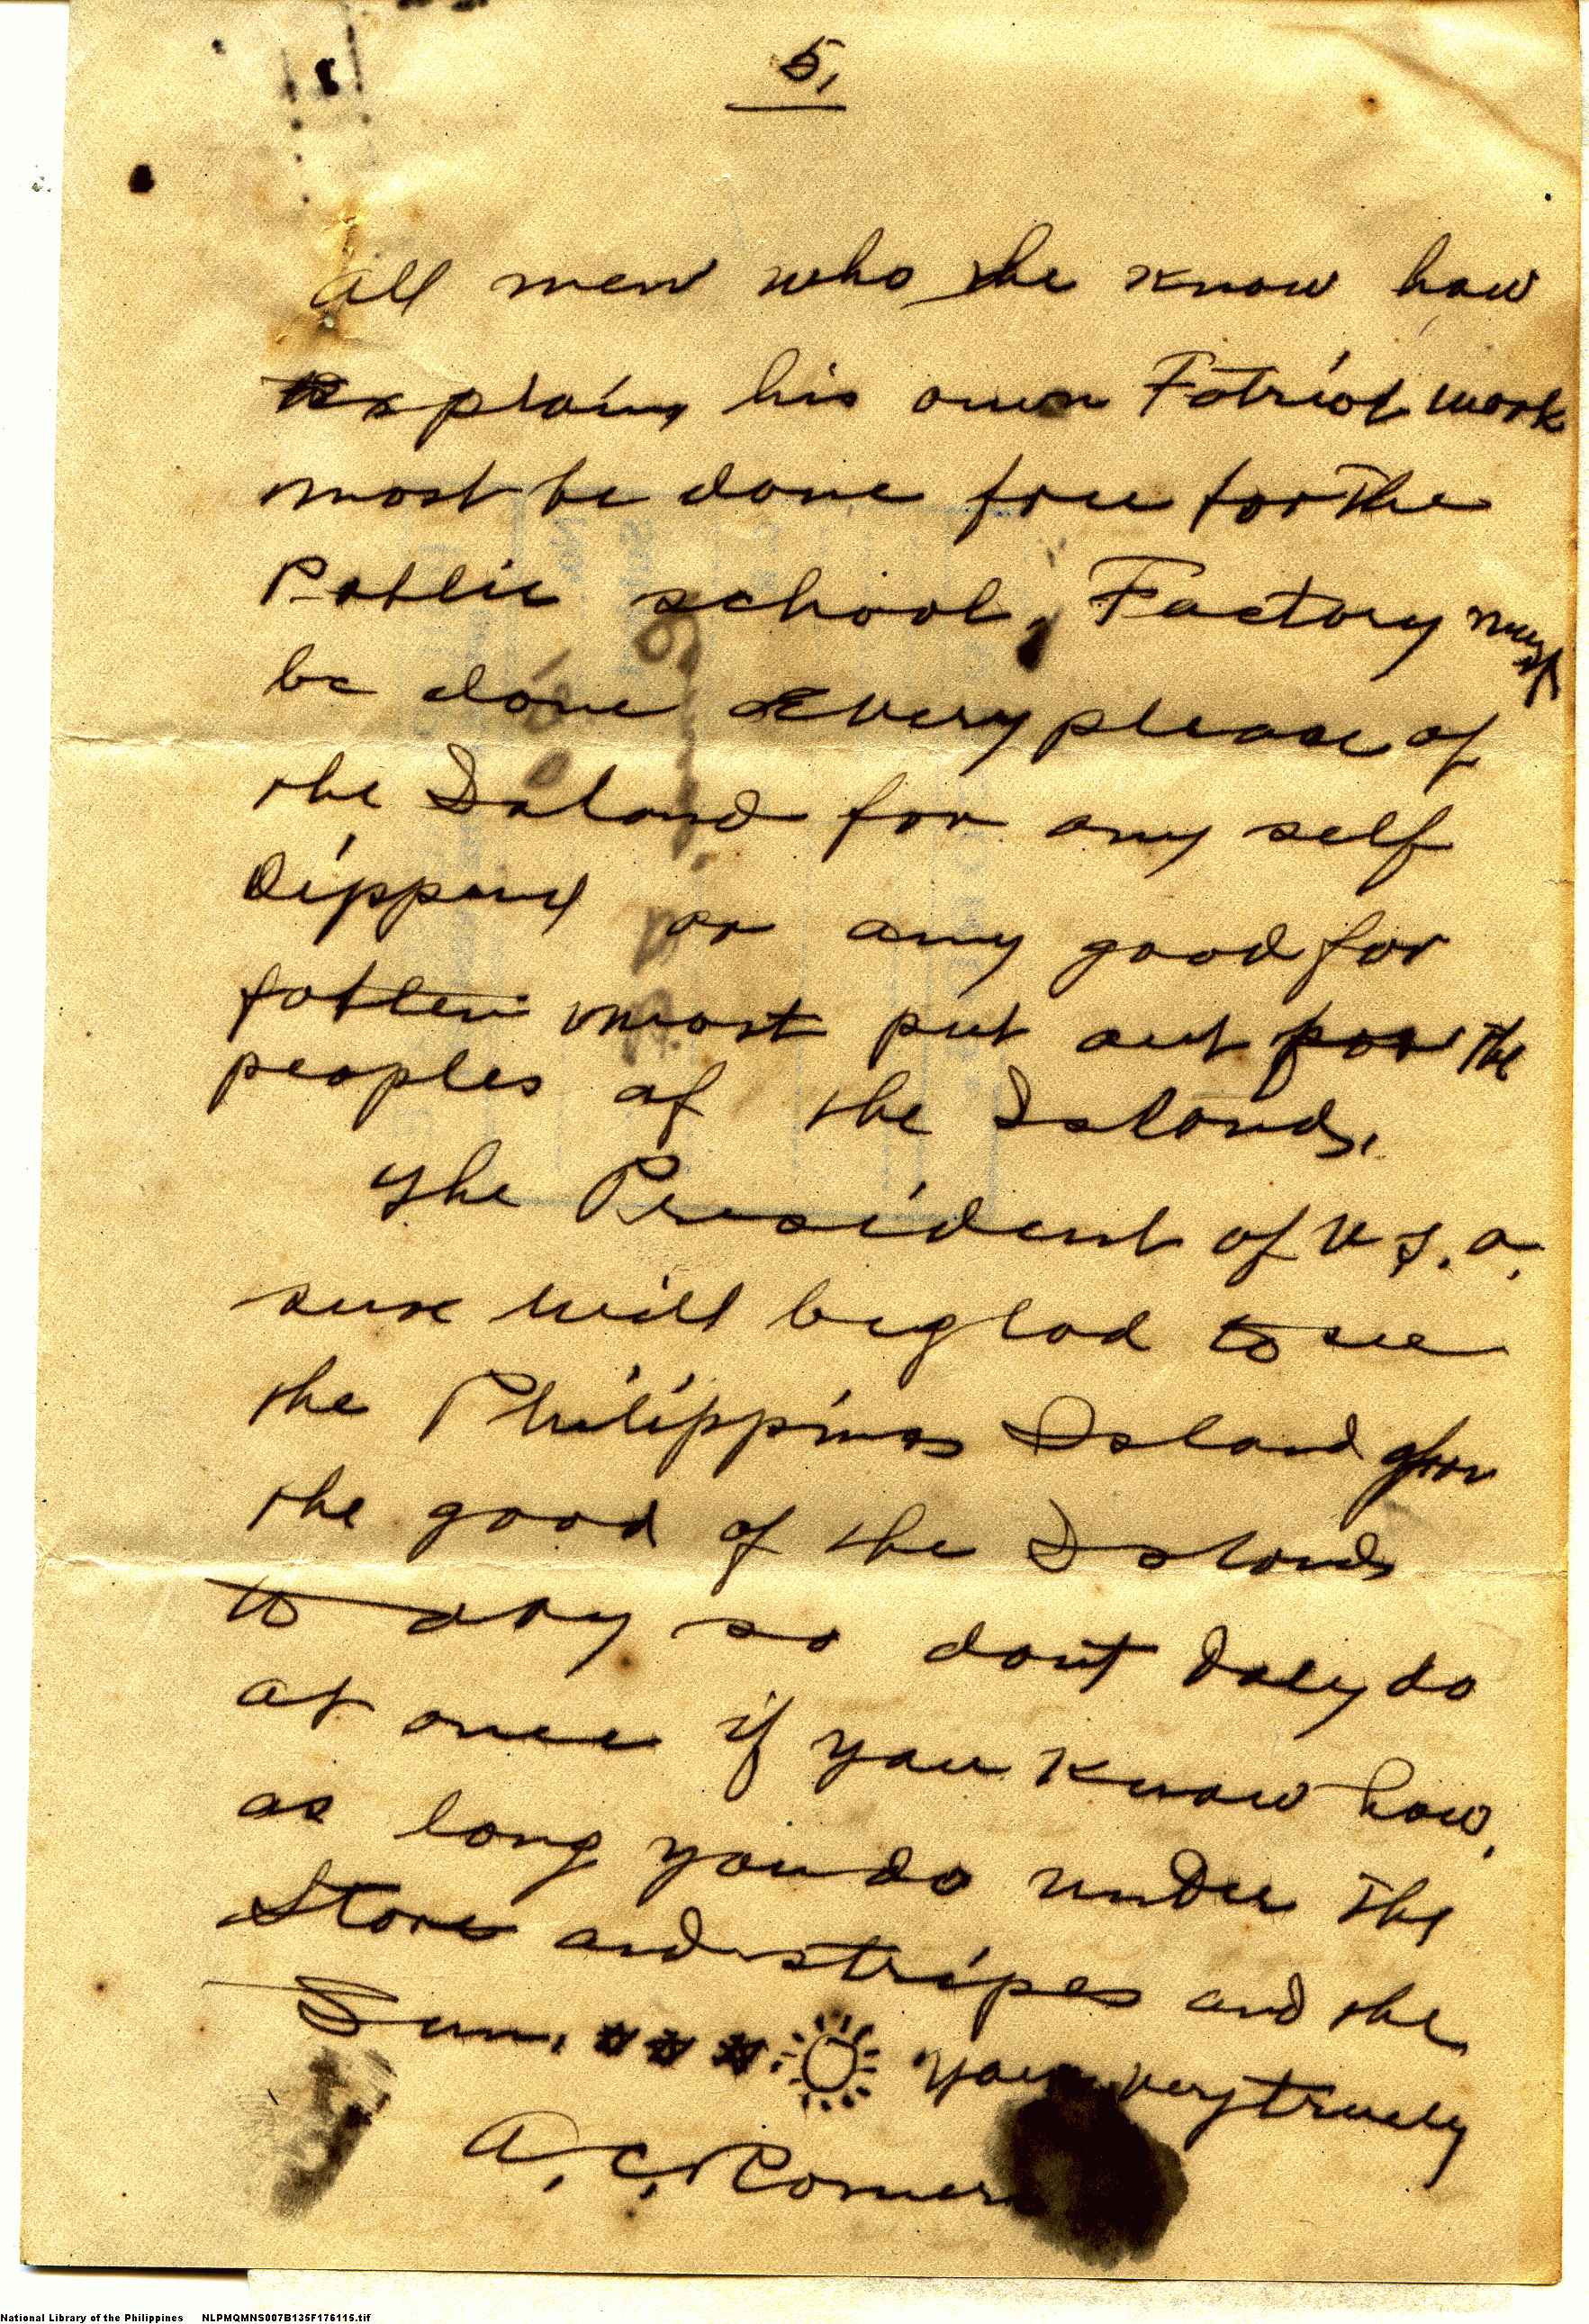 5,
All men who the know how
Explain, his own Fatriot work
most be done free for the
Poblic school, Factory must
be done Every please of
the Island for any self
Dippend or any good for
most put out for the
peoples of the Islands,
The President of U S. a.
sure will beglad to see
the Philippinos Island for
the good of the Islands
to day so don't Daley do
at once if you know how,
as long you do under the
Stars and stripes and the
Sun, your very truely
A. C. Romero
National Library of the Philippines NLPMQMNS007B135F176115.tif